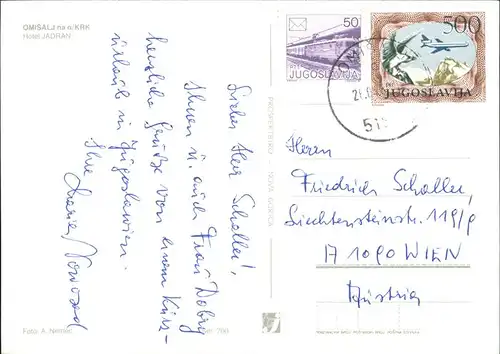 OMIŠALJ na o/KRK
Hotel JADRAN
Lieber Herr Schaller!,
Ihnen u. auch Frau Dobry
herzliche Grüße von einem Kurz-
urlaub in Jugoslawien.
Ihre Maria
Foto: A. Nemec
760
50
JUGOSLAVIJA
500
JUGOSLAVIJA
Herrn
Friedrich Schaller,
Liechtensteinstr. 119/9
A 1090 WIEN
Austria